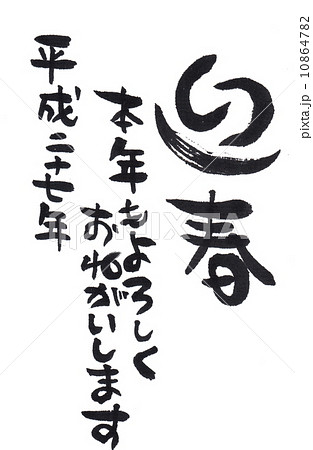 迎春
本年もよろしく
おねがいします
平成二十七年
10864782